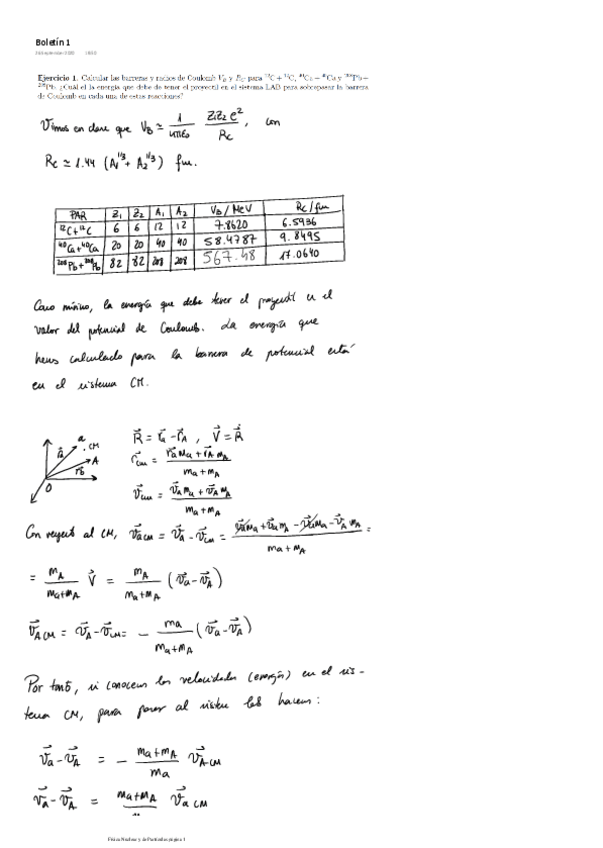 Boletín 1
Ejercicio 1. Calcular las barreras y radios de Coulomb V_B y R_C para ¹²C+¹²C, ⁴⁰Ca+⁴⁰Ca y ²⁰⁸Pb+
²⁰⁸Pb. ¿Cuál el la energía que debe de tener el proyectil en el sistema LAB para sobrepasar la barrera
de Coulomb en cada una de estas reacciones?
Vimos en clase que V_B ≃ 1/(4πε₀) Z₁Z₂e²/R_C, con
R_C ≃ 1.44 (A₁^{1/3} + A₂^{1/3}) fm.
PAR Z₁ Z₂ A₁ A₂ V_B/MeV R_C/fm
¹²C+¹²C 6 6 12 12 7.8620 6.5936
⁴⁰Ca+⁴⁰Ca 20 20 40 40 58.4787 9.8495
²⁰⁸Pb+²⁰⁸Pb 82 82 208 208 567.48 17.0640
Como mínimo, la energía que debe tener el proyectil es el
valor del potencial de Coulomb. La energía que
hemos calculado para la barrera de potencial está
en el sistema CM.
a
CM
A
r_a
r_b
O
R⃗ = r⃗_a - r⃗_A , V⃗ = Ṙ⃗
r⃗_cm = (r⃗_a m_a + r⃗_A m_A)/(m_a + m_A)
v⃗_cm = (v⃗_a m_a + v⃗_A m_A)/(m_a + m_A)
Con respecto al CM, v⃗_aCM = v⃗_a - v⃗_cm = (v⃗_a m_a + v⃗_a m_A - v⃗_a m_a - v⃗_A m_A)/(m_a + m_A) =
= m_A/(m_a+m_A) V⃗ = m_A/(m_a+m_A) (v⃗_a - v⃗_A)
v⃗_ACM = v⃗_A - v⃗_cm = - m_a/(m_a+m_A) (v⃗_a - v⃗_A)
Por tanto, si conocemos las velocidades (energía) en el sis-
tema CM, para pasar al sistema LAB hacemos:
v⃗_a - v⃗_A = - (m_a+m_A)/m_a v⃗_ACM
v⃗_a - v⃗_A = (m_a+m_A) v⃗_aCM
Física Nuclear y de Partículas página 1